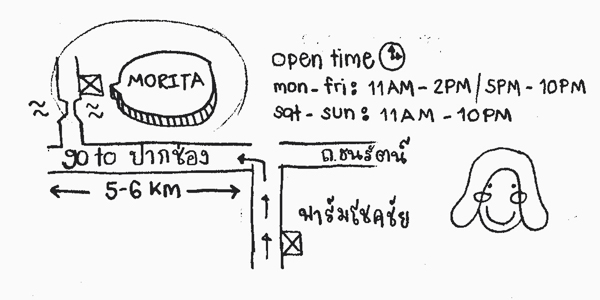 MORITA
open time
mon - fri : 11AM - 2PM / 5PM - 10PM
sat - sun : 11AM - 10PM
go to ปากช่อง
ถ.ธนะรัตน์
5-6 KM
ฟาร์มโชคชัย